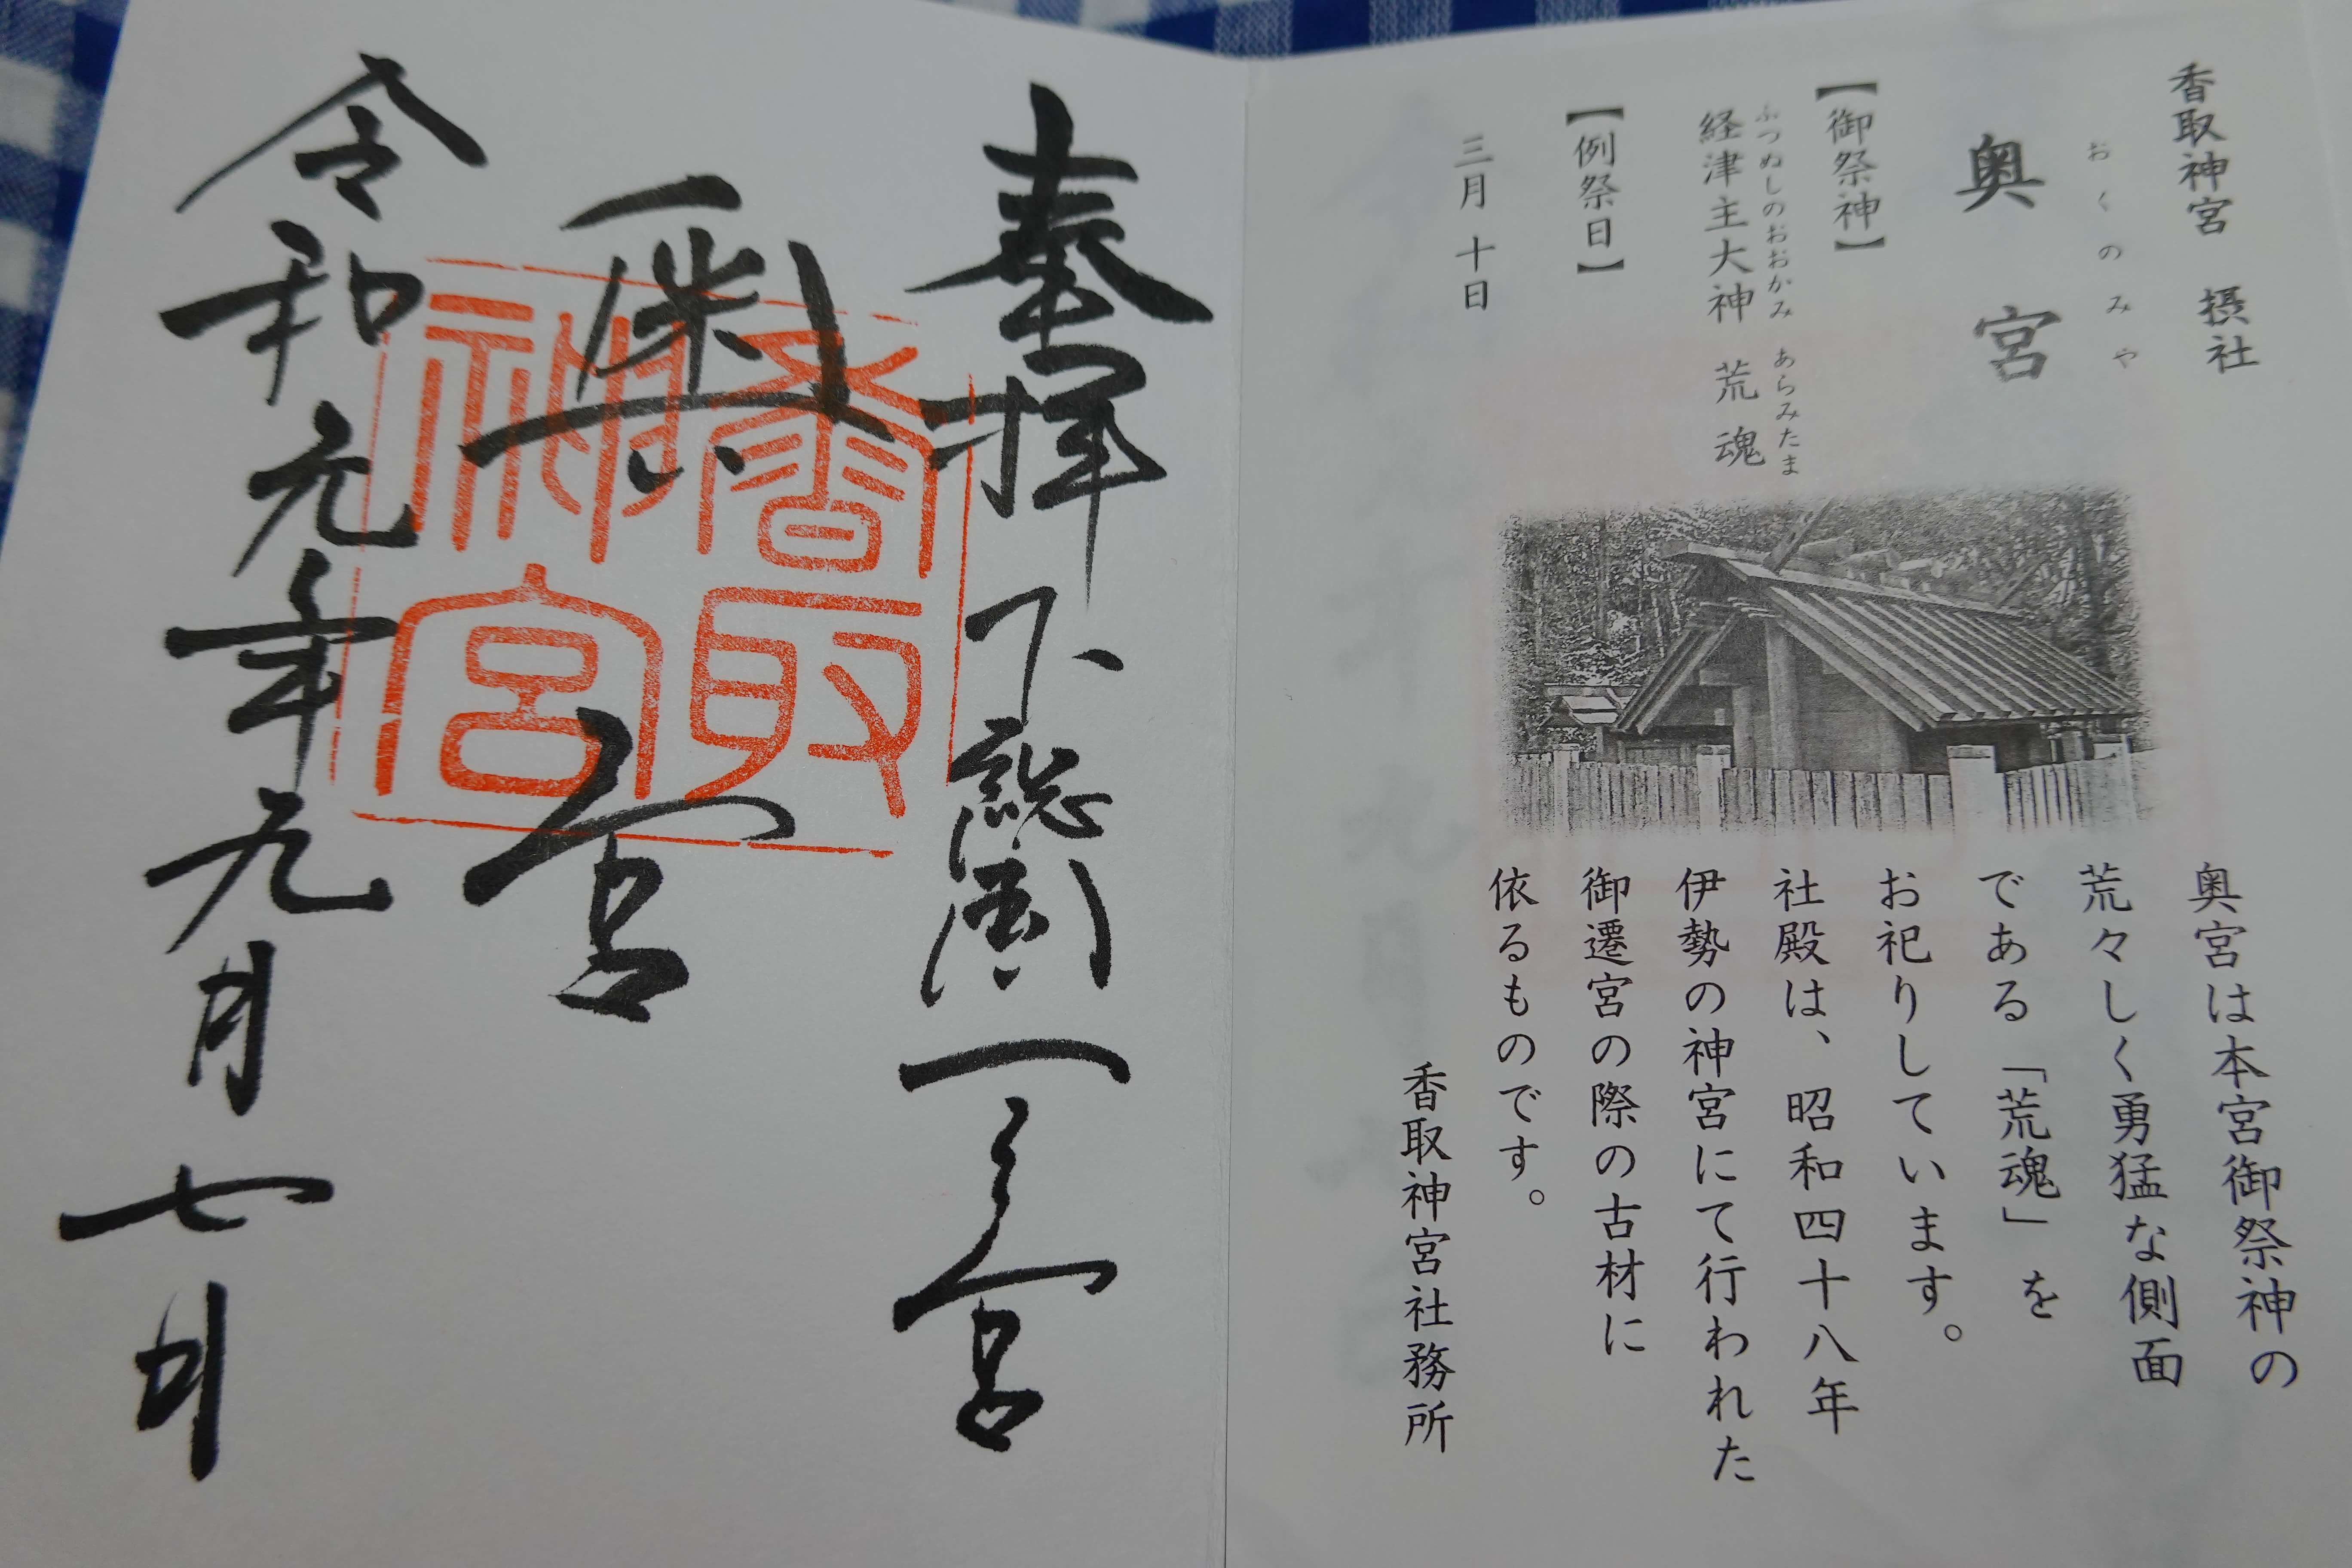 香取神宮　摂社
おくのみや
奥宮
【御祭神】
ふつぬしのおおかみ　あらみたま
経津主大神　荒魂
【例祭日】
三月十日
奥宮は本宮御祭神の
荒々しく勇猛な側面
である「荒魂」を
お祀りしています。
社殿は、昭和四十八年
伊勢の神宮にて行われた
御遷宮の際の古材に
依るものです。
香取神宮社務所
奉拝　下総國一之宮
奥宮
香取神宮
令和元年九月七日